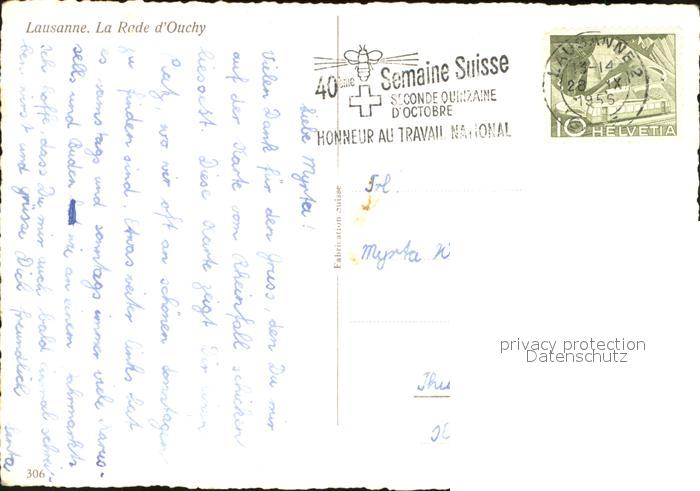 Lausanne. La Rade d'Ouchy
40ème Semaine Suisse
SECONDE QUINZAINE
D'OCTOBRE
HONNEUR AU TRAVAIL NATIONAL
LAUSANNE 2
1956
10 HELVETIA
Liebe Myrta!
Vielen Dank für den Gruss, den Du mir
auf der Karte vom Rheinfall schicken
liessest. Diese Karte zeigt Dir einen
Platz, wo wir oft an schönen Sonntagen
zu finden sind. Etwas weiter links hat
es samstags und sonntags immer viele Karus-
sells und Buden wie an einem Jahrmarkt.
Ich hoffe dass Du mir auch bald einmal schrei-
ben wirst und grüsse Dich freundlich
Fabrication suisse
Frl.
Myrta
privacy protection
Datenschutz
306